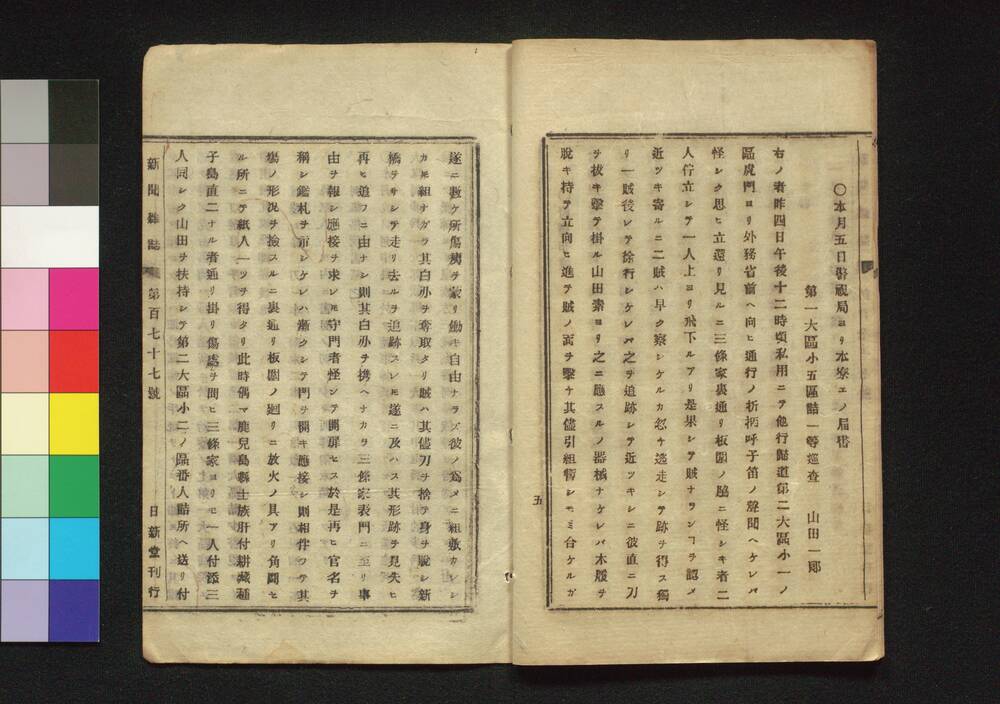 〇本月五日警視局ヨリ本寮エノ届書
第一大區小五區詰一等巡査 山田一郎
右ノ者昨四日午後十二時頃私用ニテ他行歸道第二大區小一ノ
區虎門ヨリ外務省前ヘ向ヒ通行ノ折柄呼子笛ノ聲聞ヘケレバ
怪シク思ヒ立還リ見ルニ三條家裏通リ板圍ノ脇ニ怪シキ者二
人佇立シテ一人上ヨリ飛下ルアリ是果シテ賊ナランヿヲ認メ
近ツキ寄ルニ二賊ハ早ク察シケルカ忽チ逃走シテ跡ヲ得ス獨
リ一賊後レテ徐行シケレバ之ヲ追跡シテ近ツキシニ彼直ニ刀
ヲ拔キ擊テ掛ル山田素ヨリ之ニ應スルノ器械ナケレバ木履ヲ
脫キ持テ立向ヒ進テ賊ノ面ヲ擊チ其儘引組暫シモミ合ケルガ
五
遂ニ數ケ所傷痍ヲ蒙リ働キ自由ナラズ彼ノ爲メニ組敷カレシ
カ尾組ナガラ其白刃ヲ奪取タリ賊ハ其儘刀ヲ捨テ身ヲ脫シ新
橋ヲサシテ走リ去ルヲ追跡スレ𪜈遂ニ及ハス其形跡ヲ見失ヒ
再ヒ追フニ由ナシ則其白刃ヲ携ヘナカラ三條家表門ニ至リ事
由ヲ報シ應接ヲ求レ𪜈守門者怪シテ開扉セス於是再ヒ官名ヲ
稱シ鑑札ヲ示シケレハ漸クシテ門ヲ開キ應接シ則相伴フテ其
場ノ形況ヲ撿スルニ裏通リ板圍ノ廻リニ放火ノ具アリ角鬪セ
ル所ニテ紙入一ツヲ得タリ此時偶マ鹿兒島縣士族肝付耕藏種
子島直二ナル者通リ掛リ傷處ヲ問ヒ三條家ヨリモ一人付添三
人同シク山田ヲ扶持シテ第二大區小二ノ區番人詰所ヘ送リ付
新聞雜誌 第百七十七號 日新堂刊行